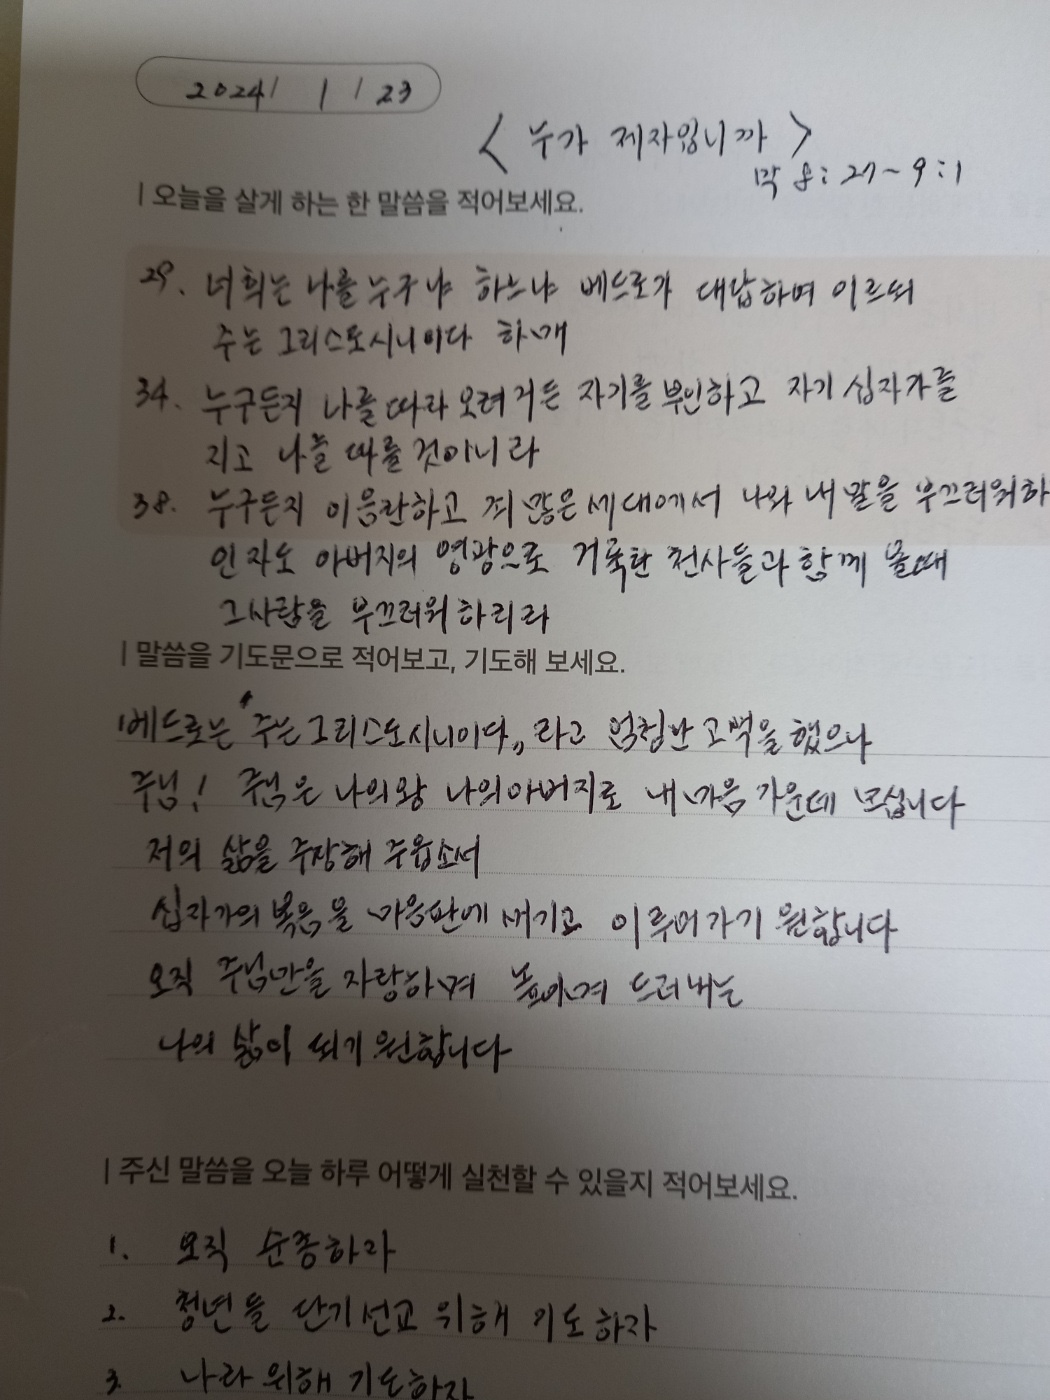 2024/ 1 / 23
< 누가 제자입니까 >
막 8:27~9:1
| 오늘을 살게 하는 한 말씀을 적어보세요.
29. 너희는 나를 누구냐 하느냐 베드로가 대답하여 이르되
주는 그리스도시니이다 하매
34. 누구든지 나를 따라 오려거든 자기를 부인하고 자기 십자가를
지고 나를 따를 것이니라
38. 누구든지 이 음란하고 죄 많은 세대에서 나와 내 말을 부끄러워하
인자도 아버지의 영광으로 거룩한 천사들과 함께 올때
그사람을 부끄러워 하리라
| 말씀을 기도문으로 적어보고, 기도해 보세요.
베드로는 "주는 그리스도시니이다" 라고 엄청난 고백을 했으나
주님! 주님은 나의 왕 나의 아버지로 내 마음 가운데 모십니다
저의 삶을 주장해 주옵소서
십자가의 복음을 마음판에 새기고 이루어가기 원합니다
오직 주님만을 자랑하며 높이며 드러내는
나의 삶이 되기 원합니다
| 주신 말씀을 오늘 하루 어떻게 실천할 수 있을지 적어보세요.
1. 오직 순종하자
2. 청년들 단기선교 위해 기도하자
3. 나라 위해 기도하자